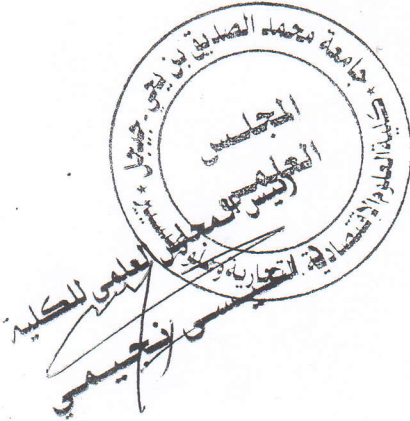 جامعة محمد الصديق بن يحي - جيجل *
كلية العلوم الاقتصادية التجارية وعلوم التسيير *
المجلس
العلمي
رئيس المجلس العلمي للكلية
عيسى نجيمي